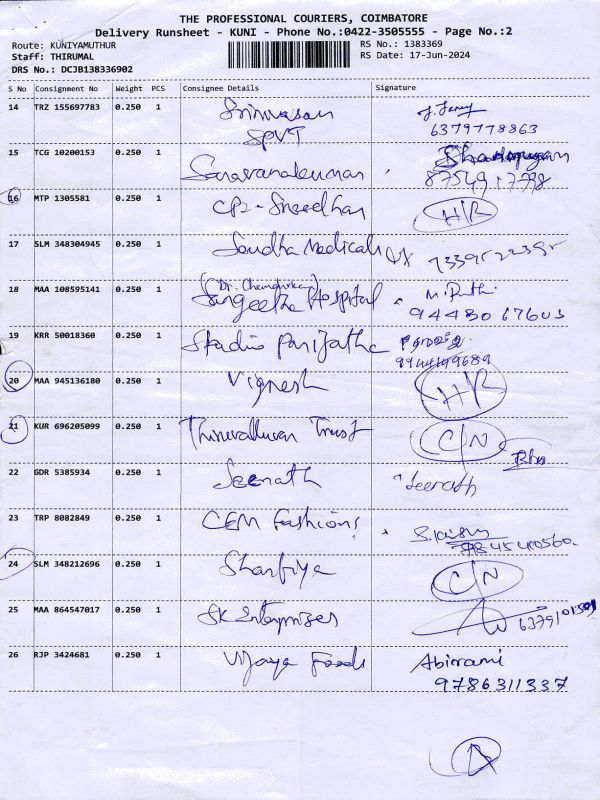 THE PROFESSIONAL COURIERS, COIMBATORE
Delivery Runsheet - KUNI - Phone No.:0422-3505555 - Page No.:2
Route: KUNIYAMUTHUR
Staff: THIRUMAL
DRS No.: DCJB138336902
RS No.: 1383369
RS Date: 17-Jun-2024
S No Consignment No Weight PCS Consignee Details Signature
14 TRZ 155697783 0.250 1 Srinivasan
SPVT 6379778863
15 TCG 10200153 0.250 1 Saravanakumar
16 MTP 1305581 0.250 1 CPR- Sreedhar H/R
17 SLM 348304945 0.250 1 Sandha Medicals
18 MAA 108595141 0.250 1 Sangeetha Hospital
94430 67603
19 KRR 50018360 0.250 1 Studio Parijatha
9944499689
20 MAA 945136180 0.250 1 Vignesh H/R
21 KUR 696205099 0.250 1 Thiruvalluvar Trust C/N
22 GDR 5385934 0.250 1 Seenath Seenath
23 TRP 8082849 0.250 1 CEM Fashions
24 SLM 348212696 0.250 1 Sharfiya C/N
25 MAA 864547017 0.250 1 SK Enterprises
26 RJP 3424681 0.250 1 Vijaya Foods Abirami
9786311337